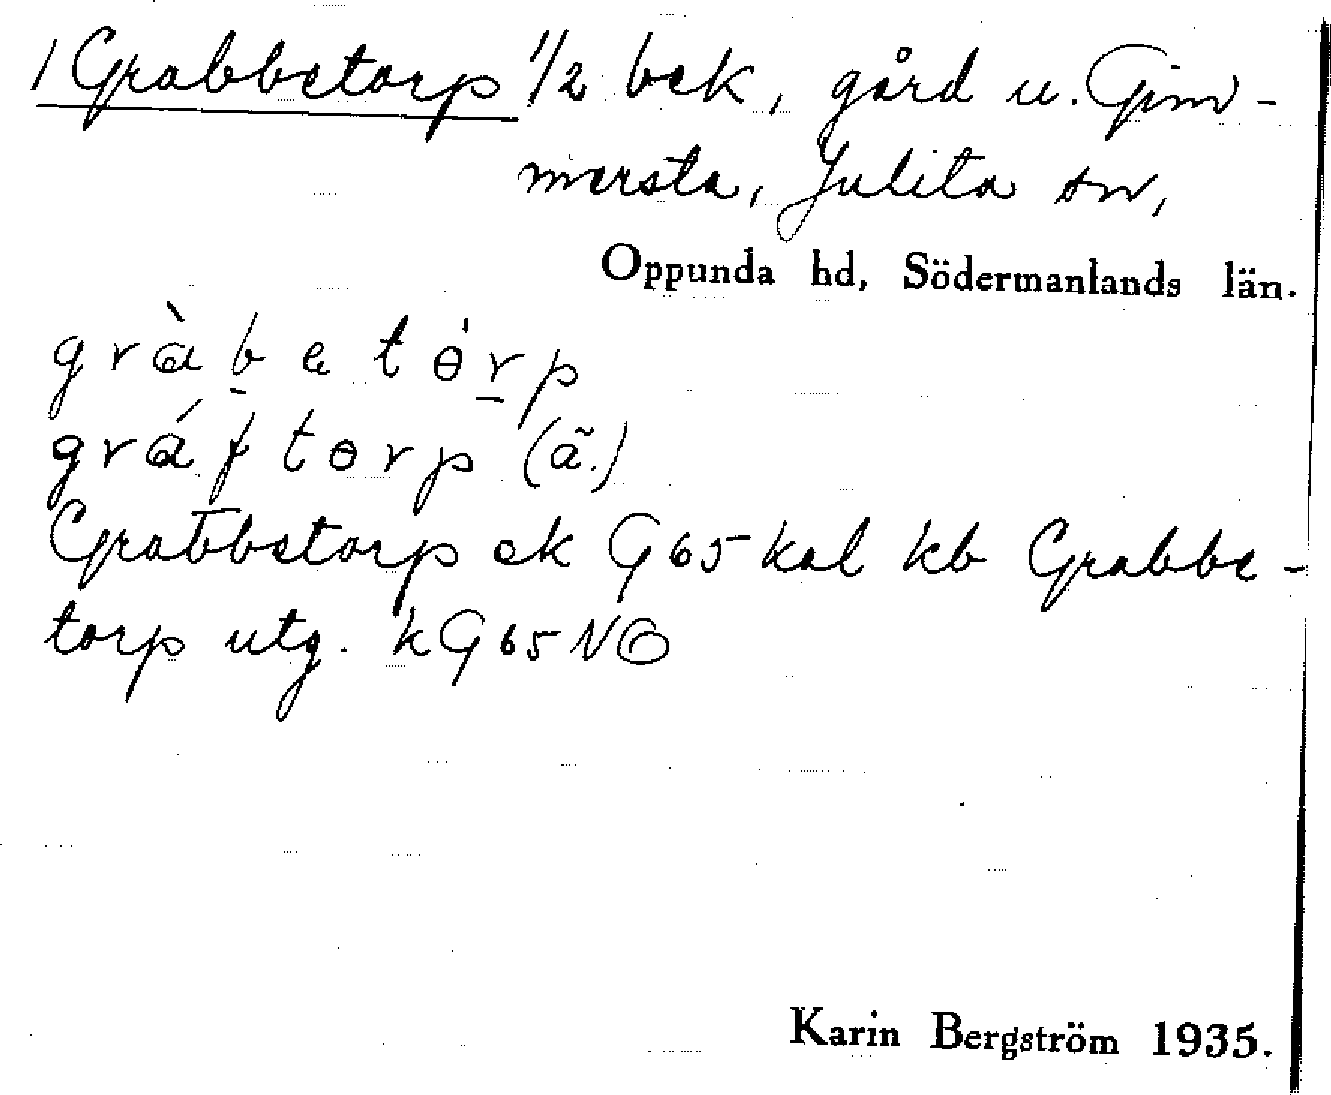 1 Grabbetorp 1/2 bek, gård u. Gim-
mersta, Julita sn,
Oppunda hd, Södermanlands län.
gràb̠etɵ̇r̠p
gráftɵrp (ä.)
Grabbetorp ek G65 kal kb Grabbe-
torp utg. k G65 NO
Karin Bergström 1935.